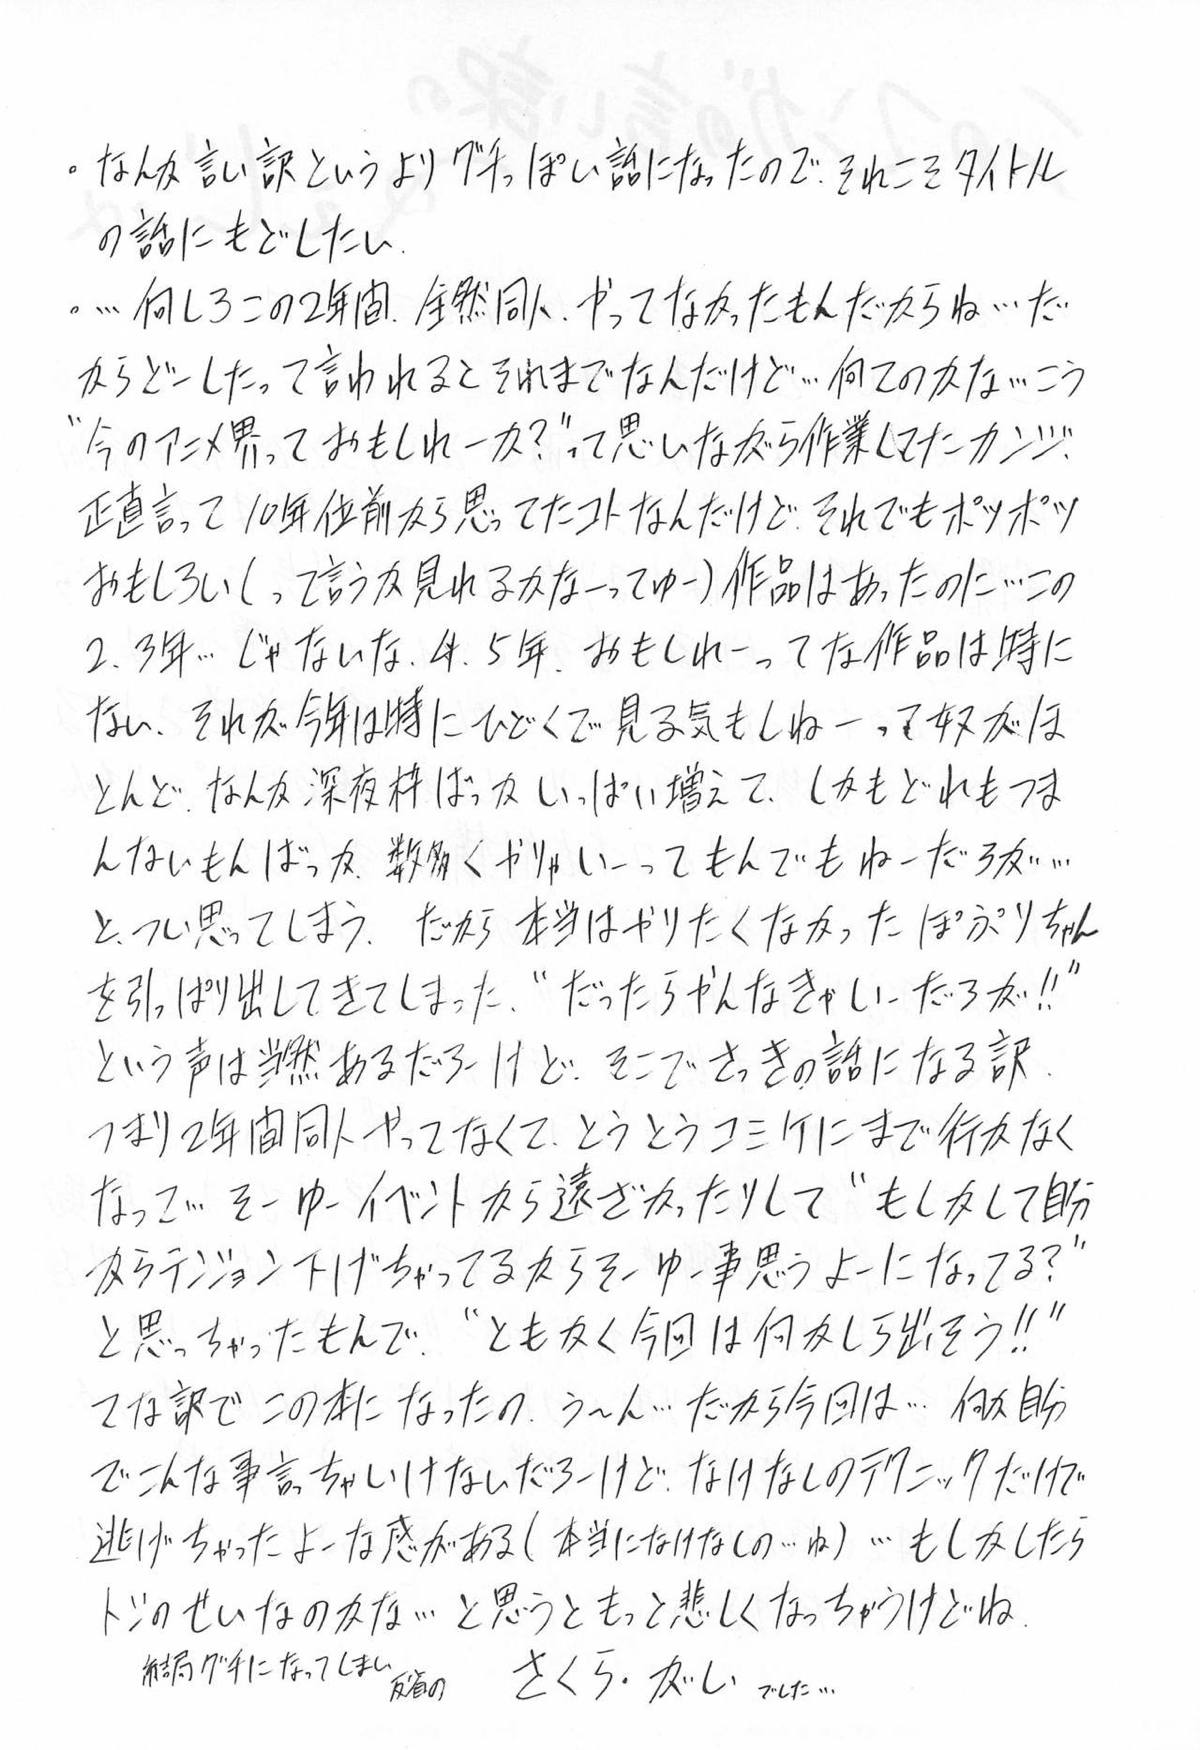 ・なんか言い訳というよりグチっぽい話になったので、それこそタイトル
の話にもどしたい.
・…何しろこの2年間、全然同人、やってなかったもんだからね…だ
からどーしたって言われるとそれまでなんだけど…何てのかな…こう
"今のアニメ界っておもしれーか?"って思いながら作業してたカンジ.
正直言って10年位前から思ってたコトなんだけど、それでもポツポツ
おもしろい(って言うか見れるかなーってゆー)作品はあったのに…この
2、3年…じゃないな、4、5年、おもしれーってな作品は特に
ない、それが今年は特にひどくて見る気もしねーって奴がほ
とんど、なんか深夜枠ばっかいっぱい増えて、しかもどれもつま
んないもんばっか、数多くやりゃいーってもんでもねーだろが…
と、つい思ってしまう、だから本当はやりたくなかったぽぷりちゃん
を引っぱり出してきてしまった、"だったらやんなきゃいーだろが!!"
という声は当然あるだろーけど、そこでさっきの話になる訳.
つまり2年間同人やってなくて、とうとうコミケにまで行かなく
なって…そーゆーイベントから遠ざかったりして"もしかして自分
からテンション下げちゃってるからそーゆー事思うよーになってる?"
と思っちゃったもんで、"ともかく今回は何かしら出そう!!"
てな訳でこの本になったの、う～ん…だから今回は…何か自分
でこんな事言っちゃいけないだろーけど、なけなしのテクニックだけで
逃げちゃったよーな感がある(本当になけなしの…ね)…もしかしたら
トシのせいなのかな…と思うともっと悲しくなっちゃうけどね.
結局グチになってしまい
反省の さくら・がしい でした…